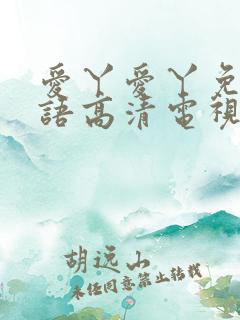 愛丫愛丫免
語高清電視
胡远山
未经同意禁止转载